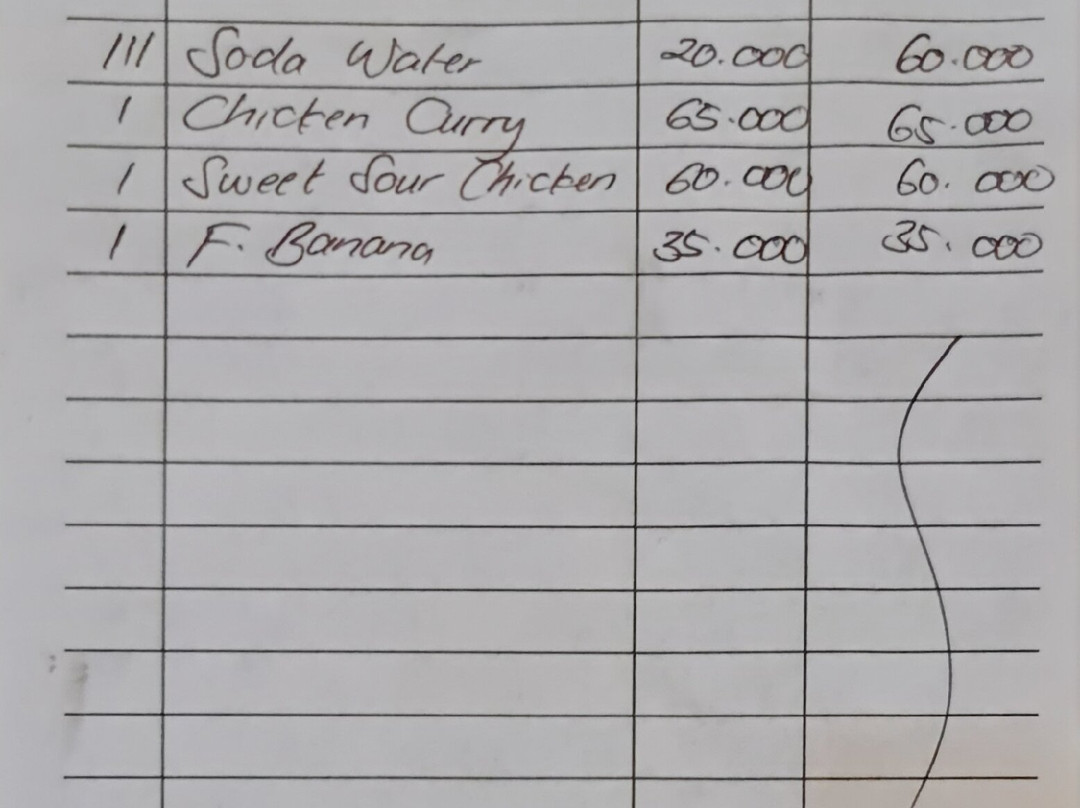 III Soda Water 20.000 60.000
1 Chicken Curry 65.000 65.000
1 Sweet Sour Chicken 60.000 60.000
1 F. Banana 35.000 35.000